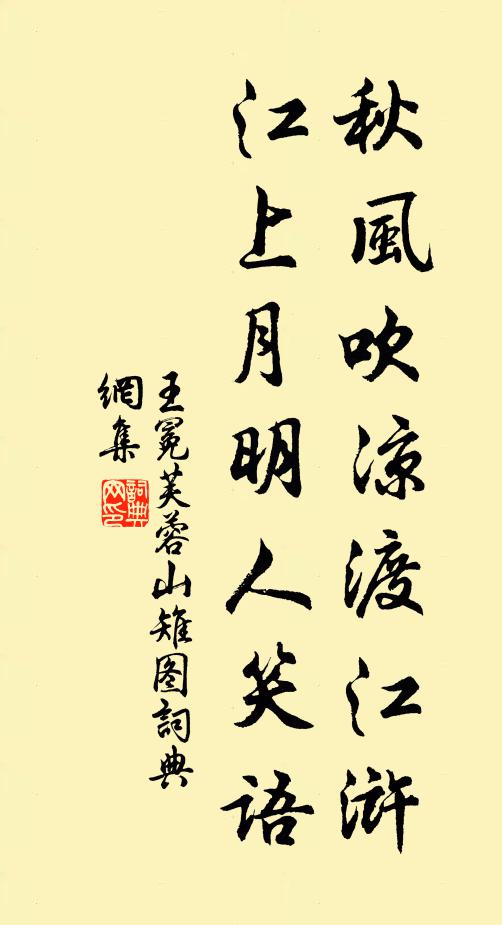 秋風吹涼渡江滸
江上月明人笑語
王冕芙蓉山雉图詞典
網集
詞典
网印